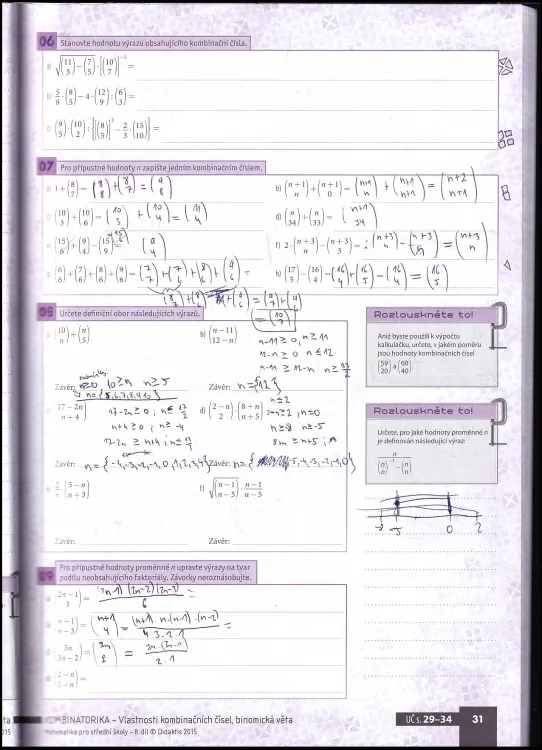 06 Stanovte hodnotu výrazu obsahujícího kombinační čísla.
a) √(11 3)−(7 5)·[(10 7)]⁻¹ =
b) 3/8·(8 5)−4·(12 9):(6 3) =
c) (9 5)·(10 2):{[(8 5)]²−2/3·(15 10)} =
07 Pro přípustné hodnoty n zapište jedním kombinačním číslem.
a) 1+(8 7)= (8 8)+(8 7) = (9 8)
b) (n+1 n)+(n+1 0)= (n+1 n) + (n+1 n+1) = (n+2 n+1)
c) (10 3)+(10 6)= (10 3) + (10 4) = (11 4)
d) (n 34)+(n 33)= (n+1 34)
e) (15 6)+(9 4)−(15 9)= (9 4)
f) 2·(n+3 n)−(n+3 3)=
= (n+3 n)
g) (6 6)+(7 6)+(8 6)+(9 6)= (7 7)+(7 6)+(8 6)+(9 6) =
h) (17 5)−(16 4)−(16 4)= (16 5)
(8 7)+(8 6)+(9 6) = (9 7)+(9 6)
= (10 7)
08 Určete definiční obor následujících výrazů.
a) (10 n)+(n 5)
b) (n−11 12−n)
n-11 ≥ 0, n ≥ 11
12-n ≥ 0 n ≤ 12
n-11 ≥ 12-n
n≥0 10≥n n≥5
Závěr: n={5,6,7,8,9,10}
Závěr: n={12}
c) (17−2n n+4)
17-2n ≥ 0
n+4 ≥ 0; n ≥ -4
17-2n ≥ n+4
d) (2−n 2)·(8+n n+5)
n≤2
2-n≥2 ; n≤0
n≥-8 n≥-5
8+n ≥ n+5
Závěr: n={-4,-3,-2,-1,0,1,2,3,4}
Závěr: n={-5,-4,-3,-2,-1,0}
e) 2/n·(5−n n+3)
f) √(n−1 n−5)·n−1/n−5
Závěr:
Závěr:
Rozlouskněte to!
Aniž byste použili k výpočtu
kalkulačku, určete, v jakém poměru
jsou hodnoty kombinačních čísel
(59 20) a (60 40).
Rozlouskněte to!
Určete, pro jaké hodnoty proměnné n
je definován následující výraz:
n/(n n)⁻¹−(n n)
-5 0 2
09 Pro přípustné hodnoty proměnné n upravte výrazy na tvar
podílu neobsahujícího faktoriály. Závorky neroznásobujte.
a) (2n−1 3)= (2n-1)(2n-2)(2n-3)/6 =
b) (n+1 n−3)= (n+1 4) = (n+1)·n·(n-1)·(n-2)/4·3·2·1 =
c) (3n 3n−2)= (3n 2) = 3n·(3n-1)/2·1
KOMBINATORIKA – Vlastnosti kombinačních čísel, binomická věta
Matematika pro střední školy – 8. díl © Didaktis 2015
UČ s. 29–34
31